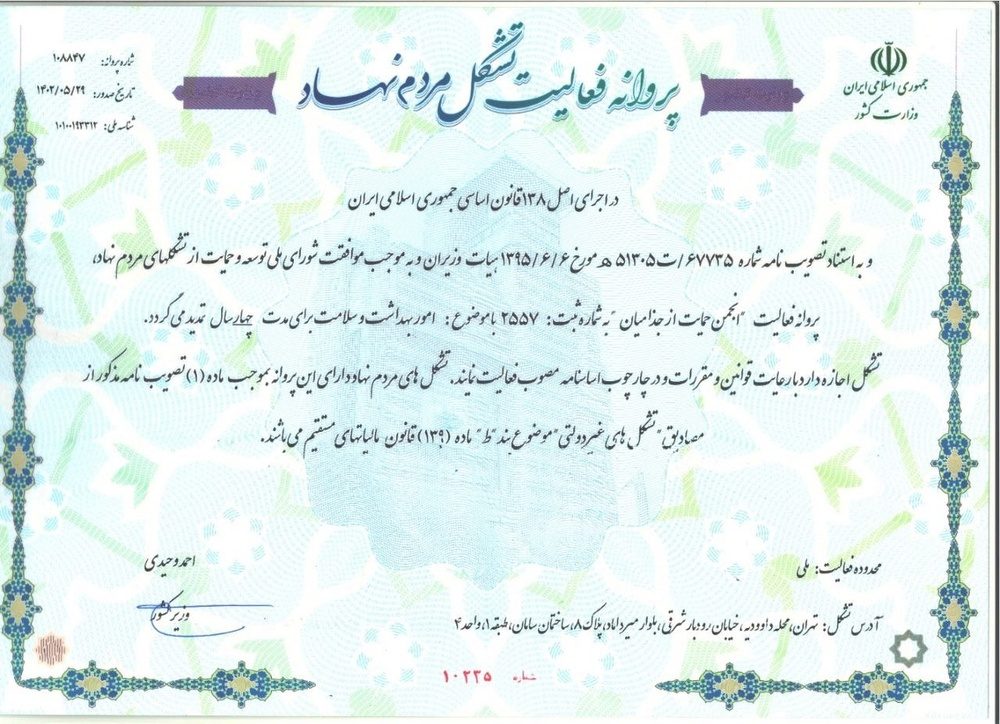 جمهوری اسلامی ایران
وزارت کشور
پروانه فعالیت تشکل مردم نهاد
شماره پروانه: ۱۰۸۸۴۷
تاریخ صدور: ۱۴۰۲/۰۵/۲۹
شناسه ملی: ۱۰۱۰۰۱۹۳۳۱۲
در اجرای اصل ۱۳۸ قانون اساسی جمهوری اسلامی ایران
و به استناد تصویب نامه شماره ۶۷۷۳۵/ت۵۱۳۰۵ ه مورخ ۱۳۹۵/۶/۶ هیات وزیران و به موجب موافقت شورای ملی توسعه و حمایت از تشکلهای مردم نهاد،
پروانه فعالیت "انجمن حمایت از جذامیان" به شماره ثبت: ۲۵۵۷ با موضوع: امور بهداشت و سلامت برای مدت چهار سال تمدید می گردد.
تشکل اجازه دارد با رعایت قوانین و مقررات و در چارچوب اساسنامه مصوب فعالیت نمایند. تشکل های مردم نهاد دارای این پروانه بموجب ماده (۱) تصویب نامه مذکور از
مصادیق "تشکل های غیردولتی" موضوع بند "ط" ماده (۱۳۹) قانون مالیاتهای مستقیم می باشند.
محدوده فعالیت: ملی
احمد وحیدی
وزیر کشور
آدرس تشکل: تهران، محله داوودیه، خیابان رودبار شرقی، بلوار میرداماد، پلاک ۸، ساختمان سامان، طبقه ۱، واحد ۴
شماره ۱۰۲۳۵